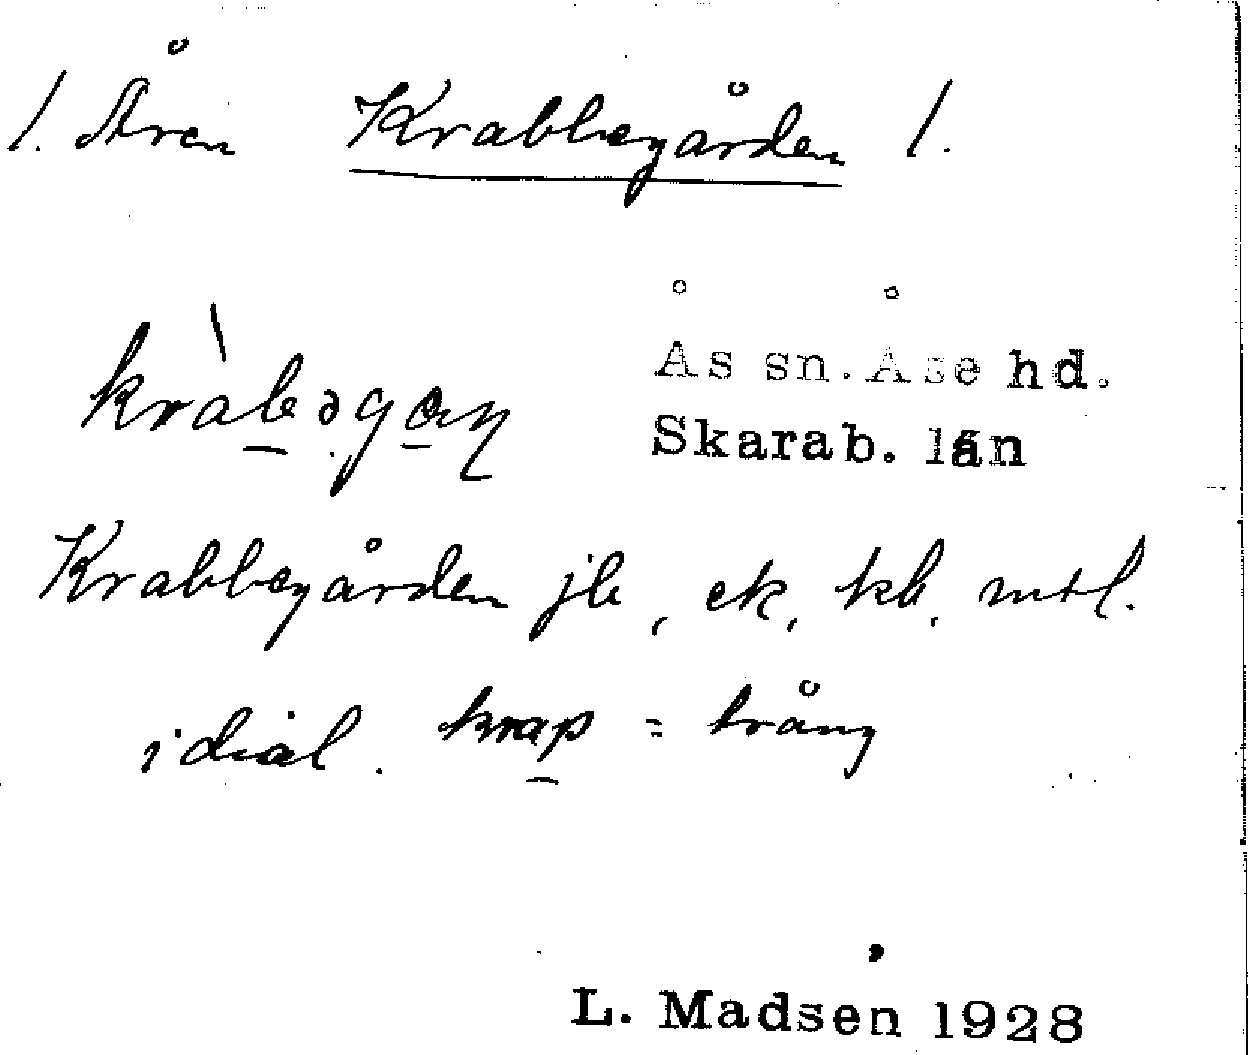 1. Åren Krabbegården 1.
Ås sn. Åse hd.
kràbəgaṇ
Skarab. län
Krabbegården jb, ek, kb, mtl.
i dial. krap = trång
L. Madsen 1928